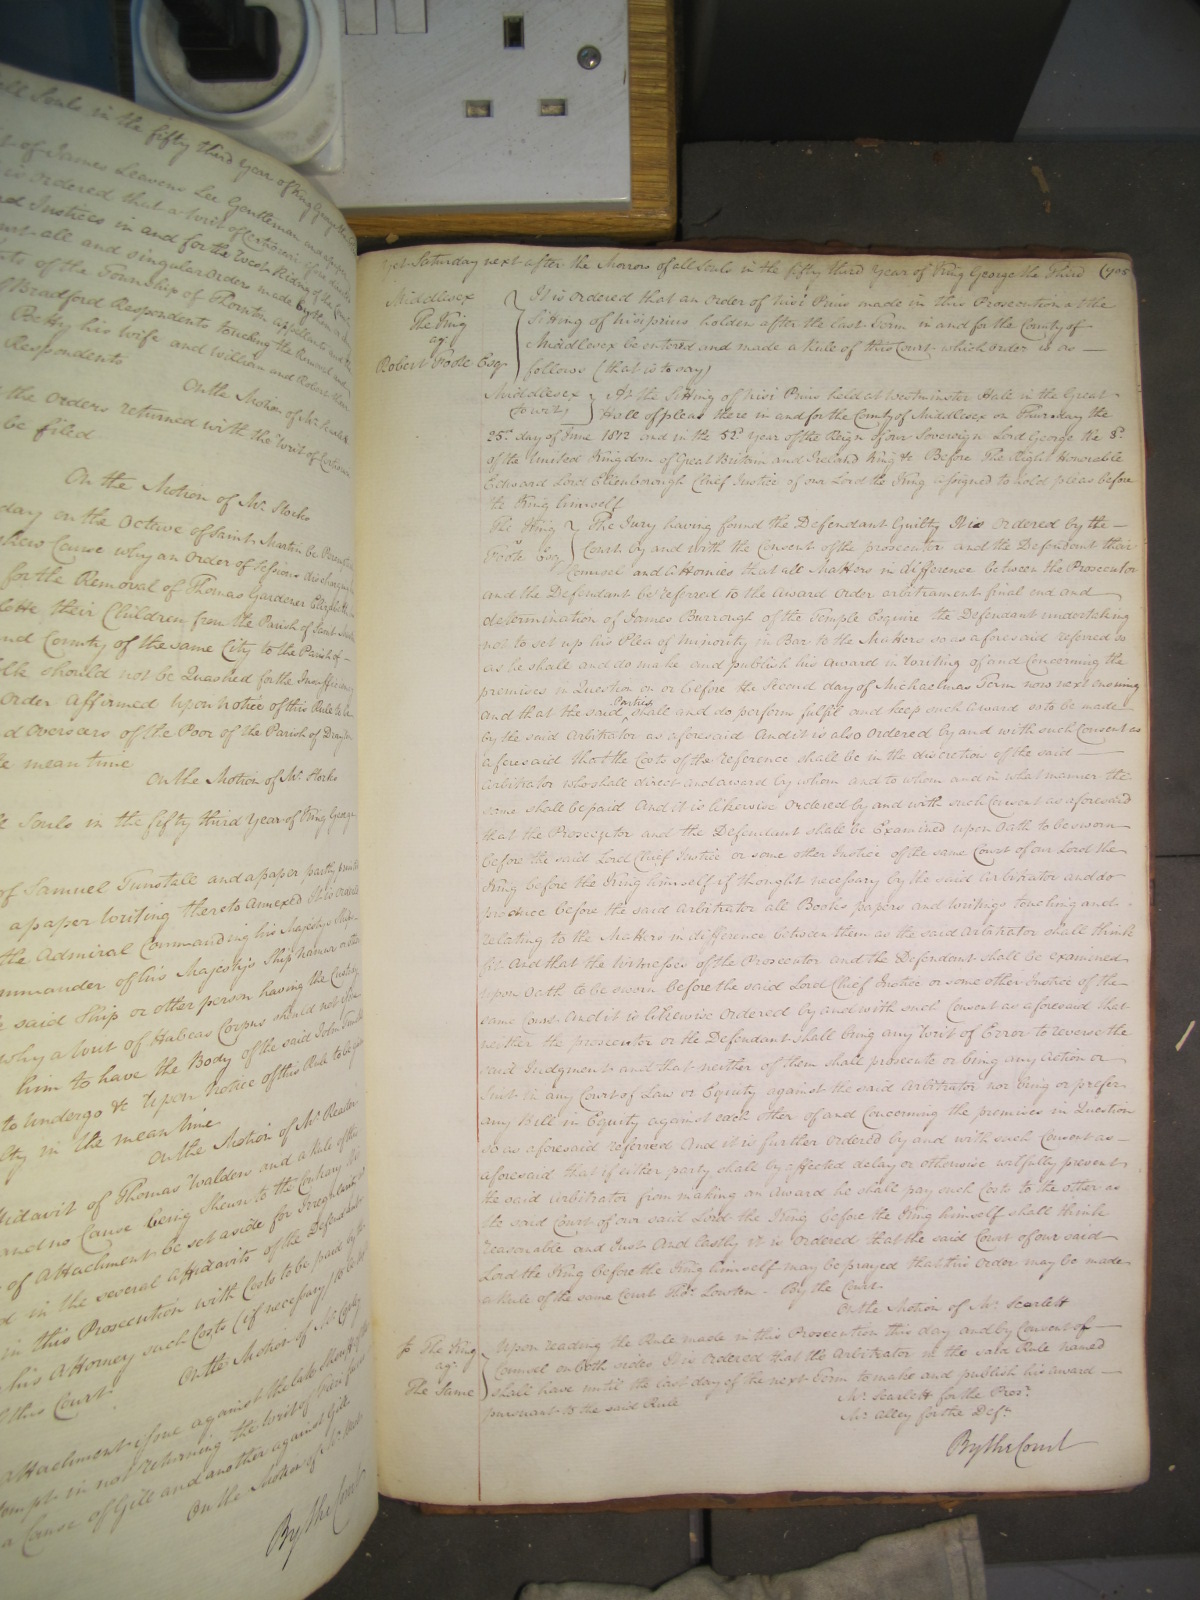 all Souls in the fifty third Year of King George the
of James Leavens Lee Gentleman
is Ordered that a Writ of Certiorari
Justices in and for the West Riding of the
all and singular Orders made by them
of the Township of Thornton Appellants and
Bradford Respondents touching the Removal
Betty his Wife and William and Robert
Respondents
On the Motion of Mr. Scarlett
the Orders returned with the Writ of Certiorari
be filed
On the Motion of Mr. Storks
day on the Octave of Saint Martin be
shew Cause why an Order of Sessions discharging
for the Removal of Thomas Gardener
their Children from the Parish of Saint
and County of the same City to the Parish of
should not be Quashed for the Insufficiency
Order affirmed Upon Notice of this Rule to be
Overseers of the Poor of the Parish of
mean time
On the Motion of Mr. Storks
Souls in the fifty third Year of King George
of Samuel Tunstall and a paper partly printed
a paper Writing thereto Annexed It is Ordered
the Admiral Commanding his Majesty's
Commander of his Majesty's Ship
said Ship or other person having the Custody
why a Writ of Habeas Corpus should not
him to have the Body of the said John
to undergo &c Upon Notice of this Rule to be given
in the mean time
On the Motion of Mr. Reader
Affidavit of Thomas Walden and a Rule of this
and no Cause being Shewn to the Contrary It is
of Attachment be set aside for Irregularity
in the several Affidavits of the Defendant
in this Prosecution with Costs to be paid
his Attorney such Costs (if necessary) to be
this Court
On the Motion of Mr.
Attachment issue against the late Sheriff of
Contempt in not returning the Writ of
a Cause of Gill and another against Gill
On the Motion of Mr.
By the Court
Yet Saturday next after the Morrow of all Souls in the fifty third Year of King George the Third (905
Middlesex
The King
agt
Robert Foote Esqr
It is Ordered that an Order of Nisi Prius made in this Prosecution at the
Sitting of Nisi prius holden after the last Term in and for the County of
Middlesex be entered and made a Rule of this Court which order is as
follows (that is to say)
Middlesex
(to wit)
At the Sitting of Nisi Prius held at Westminster Hall in the Great
Hall of pleas there in and for the County of Middlesex on Thursday the
25th day of June 1812 and in the 52d Year of the Reign of our Sovereign Lord George the 3d
of the United Kingdom of Great Britain and Ireland King &c Before The Right Honorable
Edward Lord Ellenborough Chief Justice of our Lord the King assigned to hold pleas before
the King himself
The King
v
Foote Esq
The Jury having found the Defendant Guilty It is Ordered by the
Court by and with the Consent of the prosecutor and the Defendant their
Counsel and Attornies that all Matters in difference between the Prosecutor
and the Defendant be referred to the Award Order arbitrament final end and
determination of James Burrough of the Temple Esquire the Defendant undertaking
not to set up his Plea of Minority in Bar to the Matters so as aforesaid referred so
as he shall and do make and publish his Award in Writing of and Concerning the
premises in Question on or before the Second day of Michaelmas Term now next ensuing
And that the said Parties shall and do perform fulfil and keep such Award so to be made
by the said Arbitrator as aforesaid And it is also Ordered by and with such Consent as
aforesaid that the Costs of the reference shall be in the discretion of the said
Arbitrator who shall direct and award by whom and to whom and in what manner the
same shall be paid And it is likewise Ordered by and with such Consent as aforesaid
that the Prosecutor and the Defendant shall be Examined upon Oath to be sworn
before the said Lord Chief Justice or some other Justice of the same Court of our Lord the
King before the King himself if thought necessary by the said Arbitrator and do
produce before the said Arbitrator all Books papers and Writings touching and
relating to the Matters in difference between them as the said Arbitrator shall think
fit And that the Witnesses of the Prosecutor and the Defendant shall be examined
upon Oath to be sworn before the said Lord Chief Justice or some other Justice of the
same Court And it is likewise Ordered by and with such Consent as aforesaid that
neither the prosecutor or the Defendant shall bring any Writ of Error to reverse the
said Judgment and that neither of them shall prosecute or bring any Action or
Suit in any Court of Law or Equity against the said Arbitrator nor bring or prefer
any Bill in Equity against each other of and Concerning the premises in Question
so as aforesaid referred And it is further Ordered by and with such Consent as
aforesaid that if either party shall by affected delay or otherwise wilfully prevent
the said Arbitrator from making an Award he shall pay such Costs to the other as
the said Court of our said Lord the King before the King himself shall think
reasonable and Just And lastly it is Ordered that the said Court of our said
Lord the King before the King himself may be prayed that this Order may be made
a Rule of the same Court Thos. Lowten - By the Court
On the Motion of Mr. Scarlett
The King
agt
The Same
Upon reading the Rule made in this Prosecution this day and by Consent of
Counsel on both sides It is Ordered that the Arbitrator in the said Rule named
shall have until the last day of the next Term to make and publish his award
pursuant to the said Rule
Mr. Scarlett for the Pros.r
Mr. Alley for the Def.t
By the Court